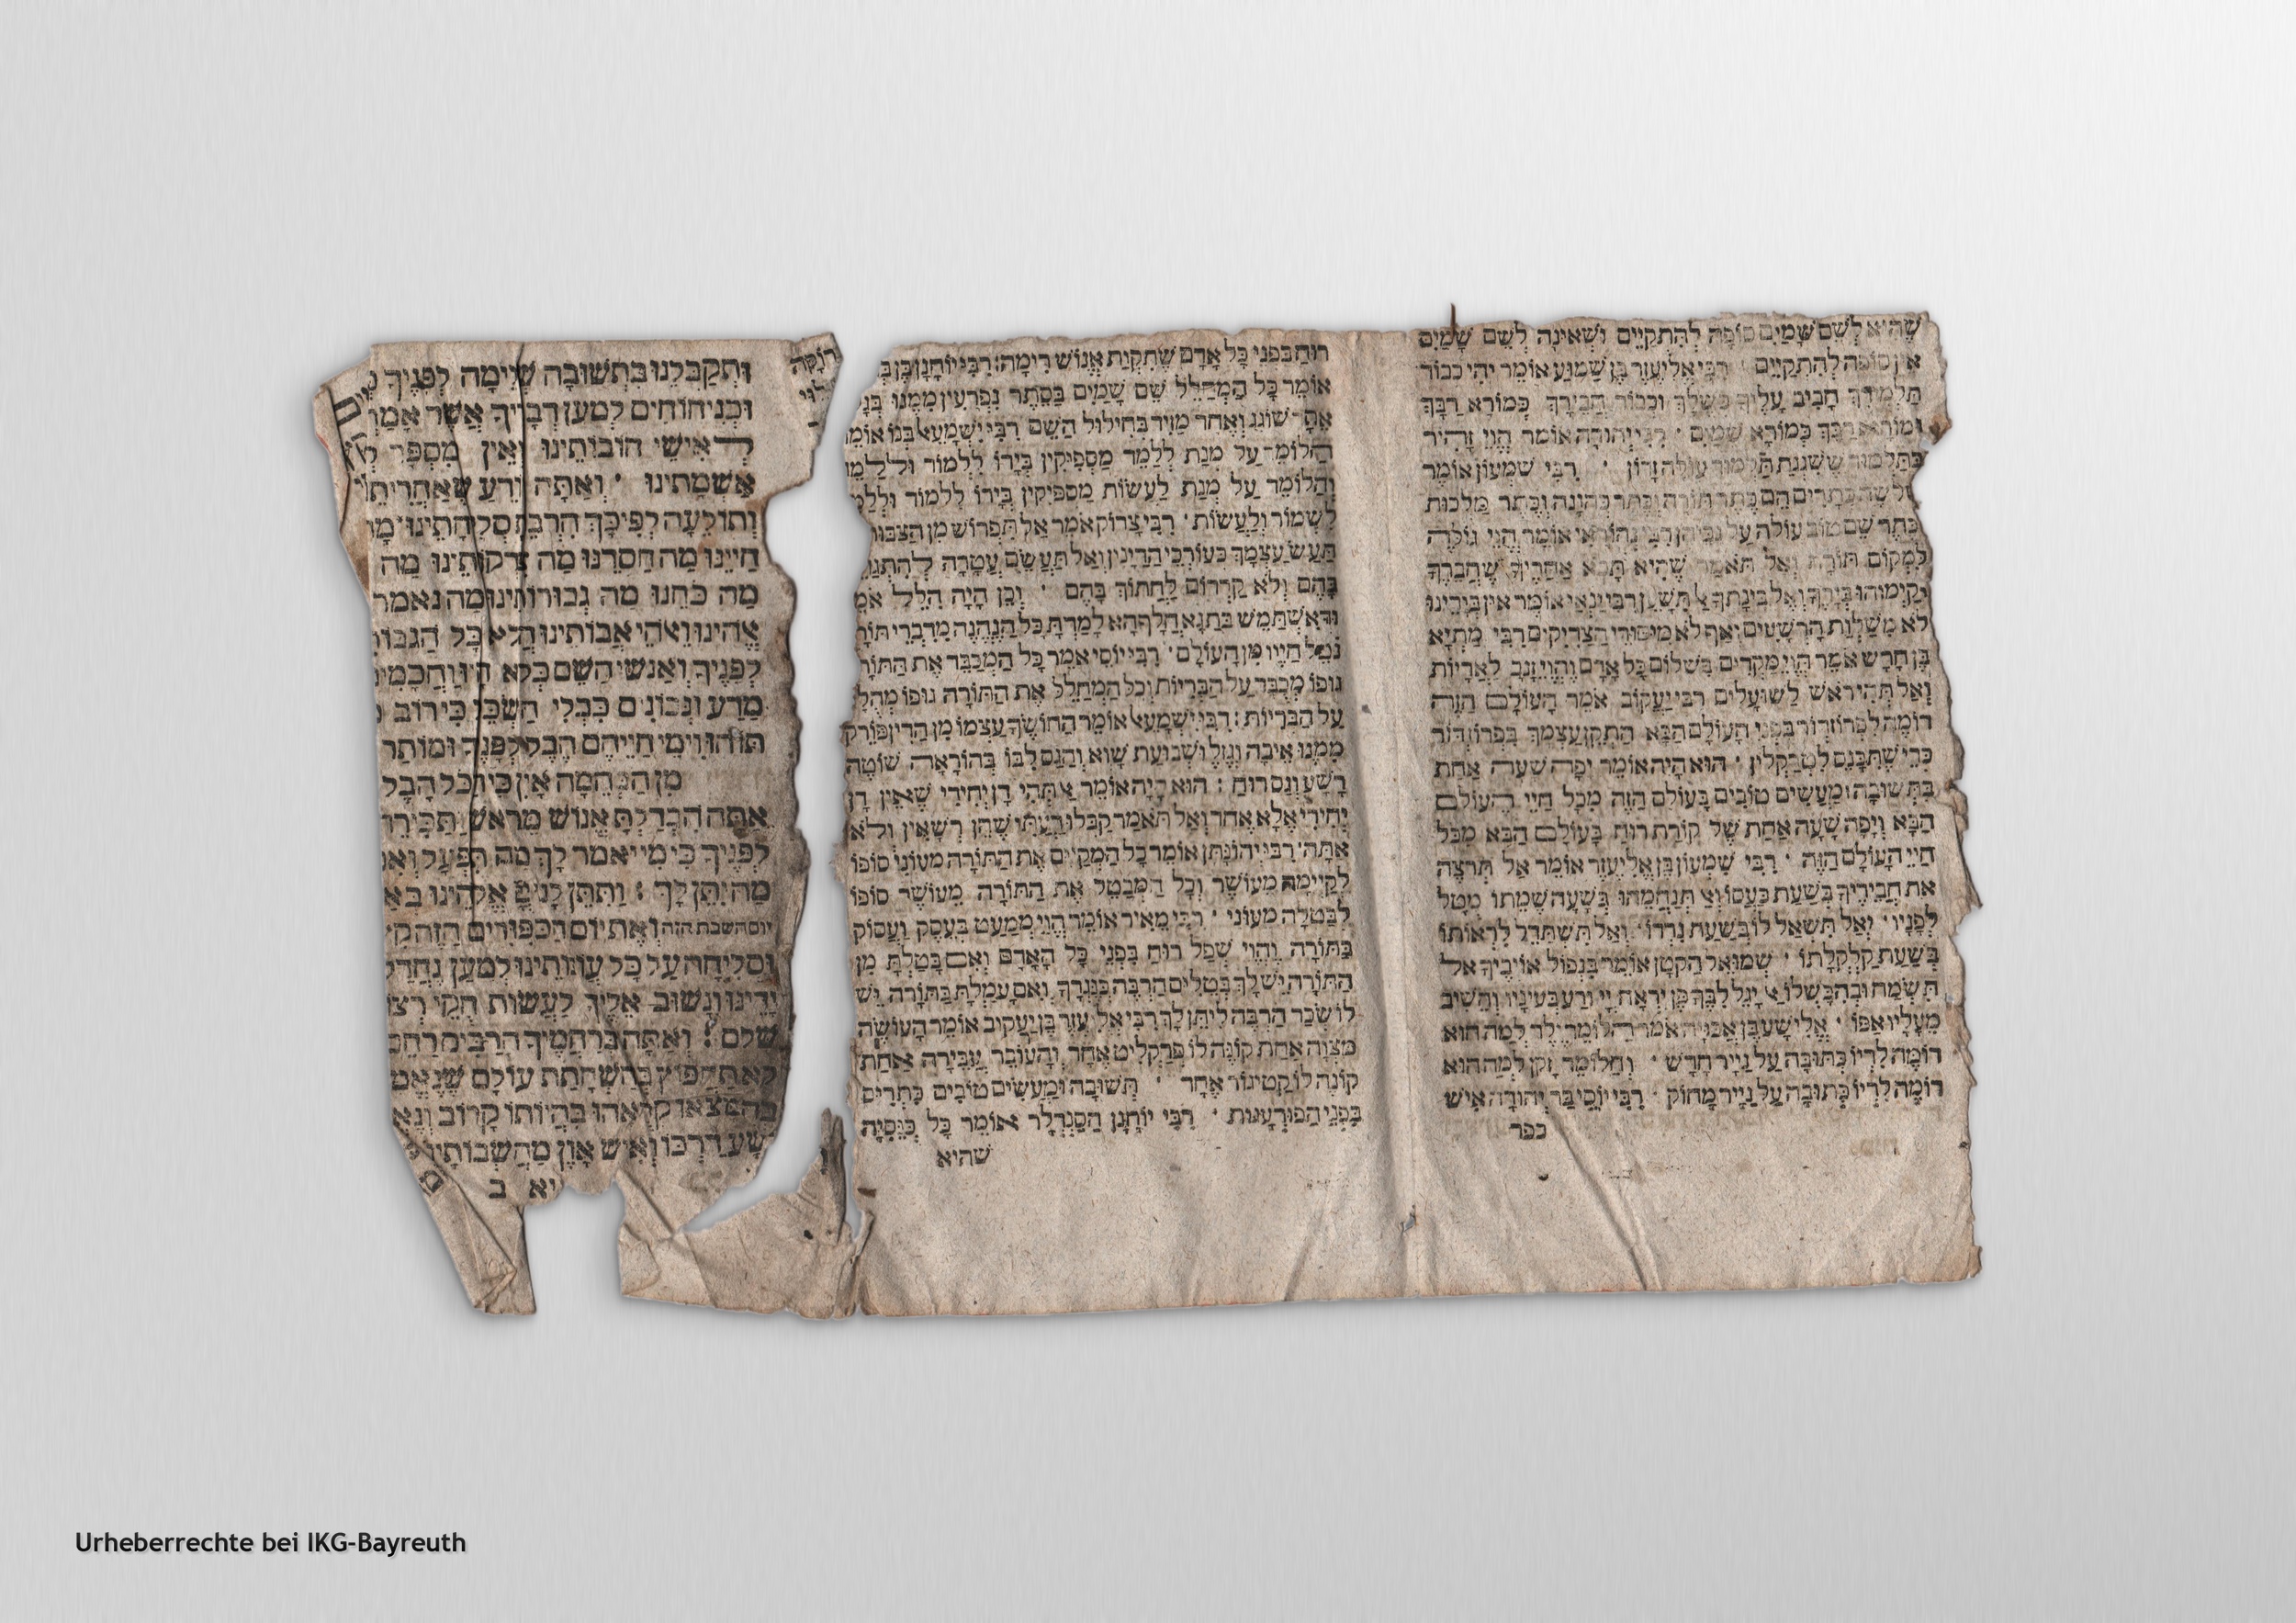 שהיא לשם שמים סופה להתקיים ושאינה לשם שמים
אין סופה להתקיים · רבי אליעזר בן שמוע אומר יהי כבוד
תלמידך חביב עליך כשלך וכבוד חבירך כמורא רבך
ומורא רבך כמורא שמים · רבי יהודה אומר הוי זהיר
בתלמוד ששגגת תלמוד עולה זדון · רבי שמעון אומר
שלשה כתרים הם כתר תורה וכתר כהונה וכתר מלכות
וכתר שם טוב עולה על גביהן רבי נהוראי אומר הוי גולה
למקום תורה ואל תאמר שהיא תבא אחריך שחבריך
יקימוה בידך ואל בינתך אל תשען רבי ינאי אומר אין בידינו
לא משלות הרשעים ואף לא מיסורי הצדיקים רבי מתיא
בן חרש אומר הוי מקדים בשלום כל אדם והוי זנב לאריות
ואל תהי ראש לשועלים רבי יעקוב אומר העולם הזה
דומה לפרוזדור בפני העולם הבא התקן עצמך בפרוזדור
כדי שתכנס לטרקלין · הוא היה אומר יפה שעה אחת
בתשובה ומעשים טובים בעולם הזה מכל חיי העולם
הבא ויפה שעה אחת של קורת רוח בעולם הבא מכל
חיי העולם הזה · רבי שמעון בן אליעזר אומר אל תרצה
את חביריך בשעת כעסו ואל תנחמהו בשעה שמתו מטל
לפניו · ואל תשאל לו בשעת נדרו · ואל תשתדל לראותו
בשעת קלקלתו · שמואל הקטן אומר בנפול אויביך אל
תשמח ובהכשלו אל יגל לבך פן יראה יי ורע בעיניו והשיב
מעליו אפו · אלישע בן אבויה אומר הלומד ילד למה הוא
דומה לדיו כתובה על נייר חדש · והלומד זקן למה הוא
דומה לדיו כתובה על נייר מחוק · רבי יוסי בר יהודה איש
כפר
רוח בפני כל אדם שתקות אנוש רימה: רבי יוחנן בן ב
אומר כל המחלל שם שמים בסתר נפרעין ממנו בגל
אחד שוגג ואחד מזיד בחילול השם רבי ישמעאל בנו אומ
הלומד על מנת ללמד מספיקין בידו ללמוד וללמ
והלומד על מנת לעשות מספיקין בידו ללמוד וללמ
לשמור ולעשות · רבי צדוק אומר אל תפרוש מן הצבור
תעש עצמך כעורכי הדינין ואל תעשם עטרה להתגד
בהם ולא קרדום לחתוך בהם · וכן היה הלל אומ
ודאשתמש בתגא חלף הא למדת כל הנהנה מדברי תור
נטל חייו מן העולם · רבי יוסי אומר כל המכבד את התור
גופו מכובד על הבריות וכל המחלל את התורה גופו מחלל
על הבריות: רבי ישמעאל אומר החושך עצמו מן הדין פורק
ממנו איבה וגזל ושבועת שוא והגס לבו בהוראה שוטה
רשע וגס רוח: הוא היה אומר אל תהי דן יחידי שאין דן
יחידי אלא אחד ואל תאמר קבלו דעתי שהן רשאין ולא
אתה · רבי יהונתן אומר כל המקיים את התורה מעוני סופו
לקיימה מעושר וכל המבטל את התורה מעושר סופו
לבטלה מעוני · רבי מאיר אומר הוי ממעט בעסק ועסוק
בתורה והוי שפל רוח בפני כל האדם ואם בטלת מן
התורה יש לך בטלים הרבה כנגדך ואם עמלת בתורה יש
לו שכר הרבה ליתן לך רבי אליעזר בן יעקוב אומר העושה
מצוה אחת קונה לו פרקליט אחד והעובר עבירה אחת
קונה לו קטיגור אחד · תשובה ומעשים טובים כתריס
בפני הפורענות · רבי יוחנן הסנדלר אומר כל כנסיה
שהיא
ותקבלנו בתשובה שלימה לפניך
וכניחוחים למען דבריך אשר אמר
לאישי חובותינו ואין מספר
אשמתינו · ואתה יודע שאחריתנו
ותולעה לפיכך הרבת סליחתינו מה
חיינו מה חסדנו מה צדקותינו מה
מה כחנו מה גבורותינו מה נאמר
אלהינו ואלהי אבותינו הלא כל הגבור
לפניך ואנשי השם כלא היו וחכמים
מדע ונבונים כבלי השכל כי רוב
תוהו וימי חייהם הבל לפניך ומותר
מן הבהמה אין כי הכל הבל
אתה הבדלת אנוש מראש ותכירהו
לפניך כי מי יאמר לך מה תפעל ואם
מה יתן לך: ותתן לנו יי אלהינו בא
יום השבת הזה ואת יום הכפורים הזה קץ
וסליחה על כל עונותינו למען נחדל
ידינו ונשוב אליך לעשות חקי רצו
שלם: ואתה ברחמיך הרבים רחם
לא תחפוץ בהשחתת עולם שנאמר
בהמצאו קראהו בהיותו קרוב ונא
רשע דרכו ואיש און מחשבותיו
Urheberrechte bei IKG-Bayreuth